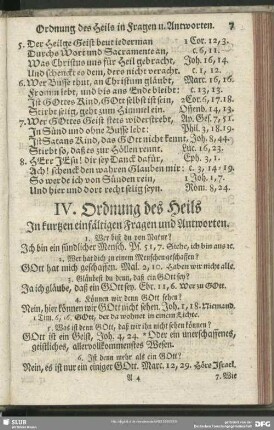 Ordnung des Heils in Fragen u. Antworten. 7
5. Der Heilge Geist beut iederman 1 Cor. 12, 3.
Durchs Wort und Sacramente an, c. 6, 11.
Was Christus uns für Heil gebracht, Joh. 16, 14.
Und schenckt es dem, ders nicht veracht. c. 1, 12.
6. Wer Busse thut, an Christum gläubt, Marc. 16, 16.
Fromm lebt, und bis ans Ende bleibt: c. 13, 13.
Ist GOttes Kind, GOtt selbst ist sein, 2Cor. 6, 17.18.
Stirbt selig, geht zum Himmel ein. Offenb. 14, 13.
7. Wer GOttes Geist stets widerstrebt, Ap. Ges. 7, 51.
In Sünd und ohne Busse lebt: Phil. 3, 18.19.
Ist Satans Kind, das GOtt nicht kennt, Joh. 8, 44.
Stirbt so, daß es zur Höllen rennt. Luc. 16, 23.
8. HErr JEsu! dir sey Danck dafür, Eph. 3, 1.
Ach! schenck den wahren Glauben mir: c. 3, 14-19.
So werde ich von Sünden rein, 1 Joh. 1, 7.
Und hier und dort recht selig seyn. Röm. 8, 24.
IV. Ordnung des Heils
In kurtzen einfältigen Fragen und Antworten.
1. Wer bist du von Natur?
Ich bin ein sündlicher Mensch. Ps. 51, 7. Siehe, ich bin aus ꝛc.
2. Wer hat dich zu einem Menschen geschaffen?
GOtt hat mich geschaffen. Mal. 2, 10. Haben wir nicht alle.
3. Gläubest du denn, daß ein GOtt sey?
Ja ich gläube, daß ein GOtt sey. Ebr. 11, 6. Wer zu GOtt.
4. Können wir denn GOtt sehen?
Nein, hier können wir GOtt nicht sehen. Joh. 1, 18. Niemand.
1 Tim. 6, 16. GOtt, der da wohnet in einem Lichte.
5. Was ist denn GOtt, daß wir ihn nicht sehen können?
GOtt ist ein Geist, Joh. 4, 24. * Oder ein unerschaffenes,
geistliches, allervollkommenstes Wesen.
6. Ist denn mehr als ein GOtt?
Nein, es ist nur ein einiger GOtt. Marc. 12, 29. Höre Israel.
A 4 7. Wie
SLUB
DFG